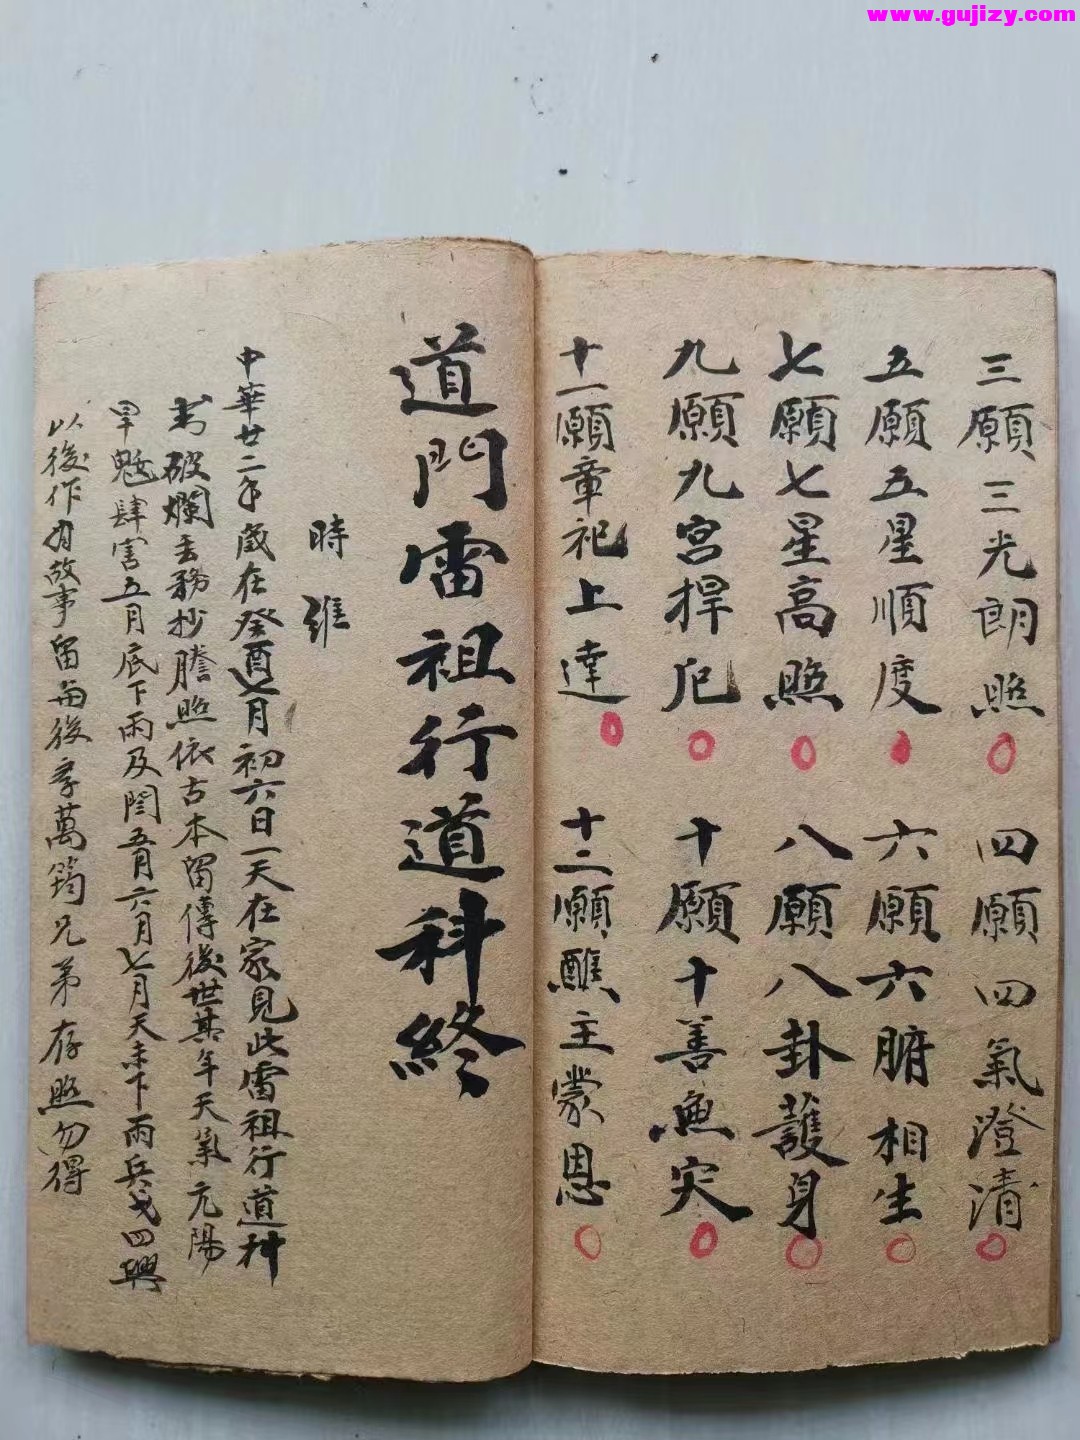 www.gujizy.com
三願三光朗照 四願四氣澄清
五願五星順度 六願六腑相生
七願七星高照 八願八卦護身
九願九宮捍厄 十願十善無灾
十一願章祀上達 十二願醮主蒙恩
道門雷祖行道科終
時維
中華廿二年歲在癸酉七月初六日一天在家見此雷祖行道科
書破爛 務抄謄照依古本留傳後世其年天氣亢陽
旱魃肆害五月底下雨及閏五月六月七月天未下雨兵戈四興
以後作為故事留與後 萬筠兄弟存照勿得